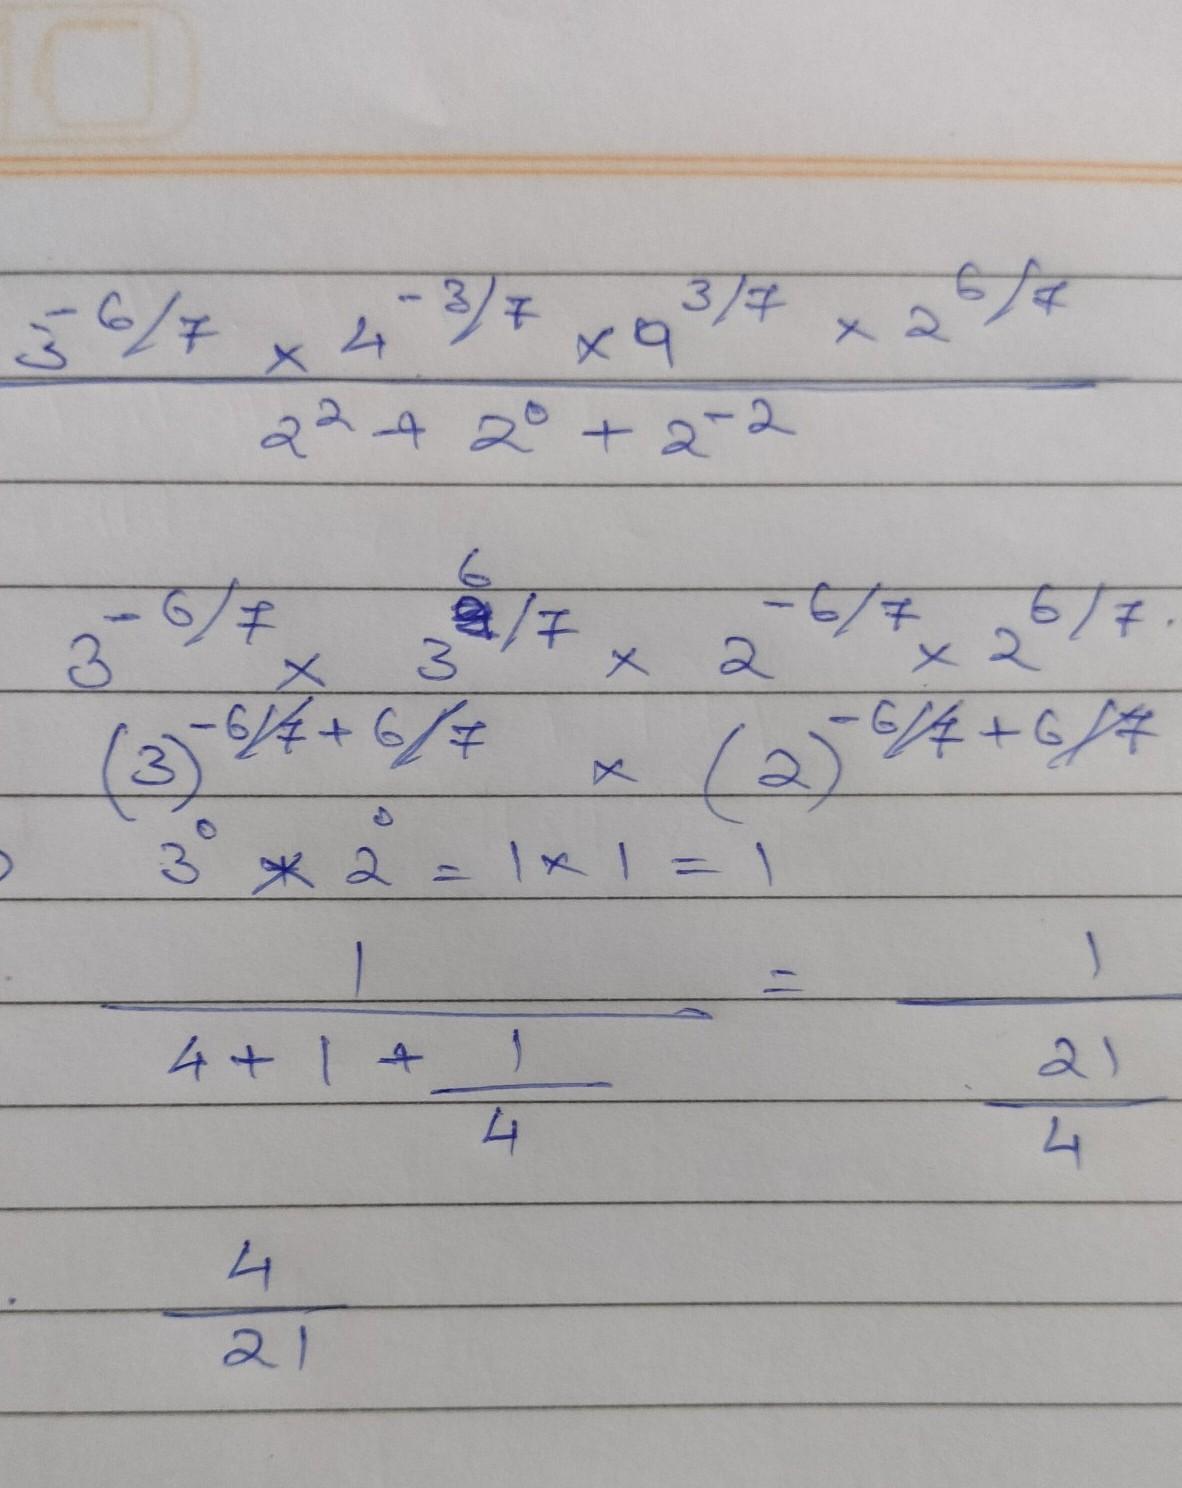 3^{-6/7} × 4^{-3/7} × 9^{3/7} × 2^{6/7}
2² + 2⁰ + 2⁻²
3^{-6/7} × 3^{6/7} × 2^{-6/7} × 2^{6/7}.
(3)^{-6/7+6/7} × (2)^{-6/7+6/7}
3⁰ × 2⁰ = 1 × 1 = 1
1 = 1
4 + 1 + 1 21
4 4
4
21